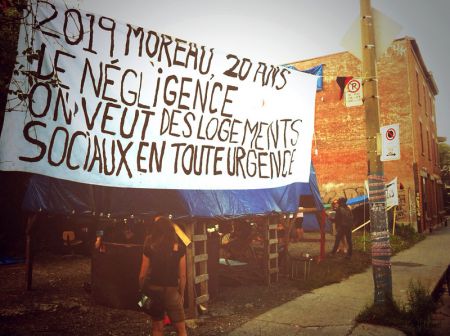 2019 MOREAU, 20 ANS
DE NÉGLIGENCE
ON VEUT DES LOGEMENTS
SOCIAUX EN TOUTE URGENCE